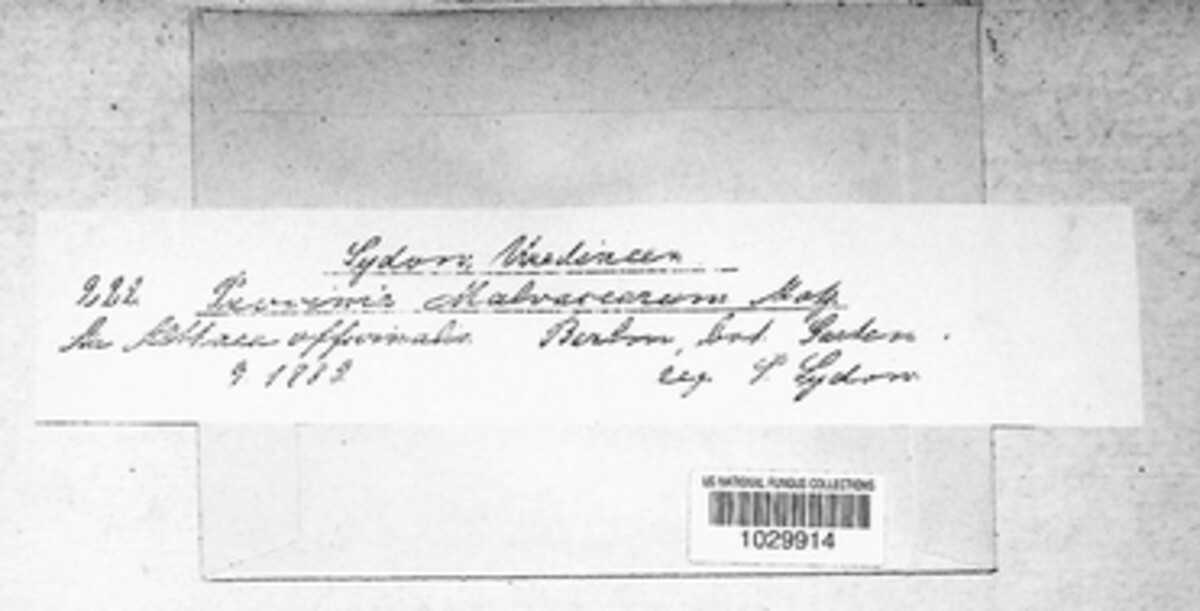 Sydow, Uredineen
222. Puccinia Malvacearum Mont
In Althaea officinalis. Berlin, bot. Garten.
9. 1882 leg. P. Sydow
US NATIONAL FUNGUS COLLECTIONS
1029914